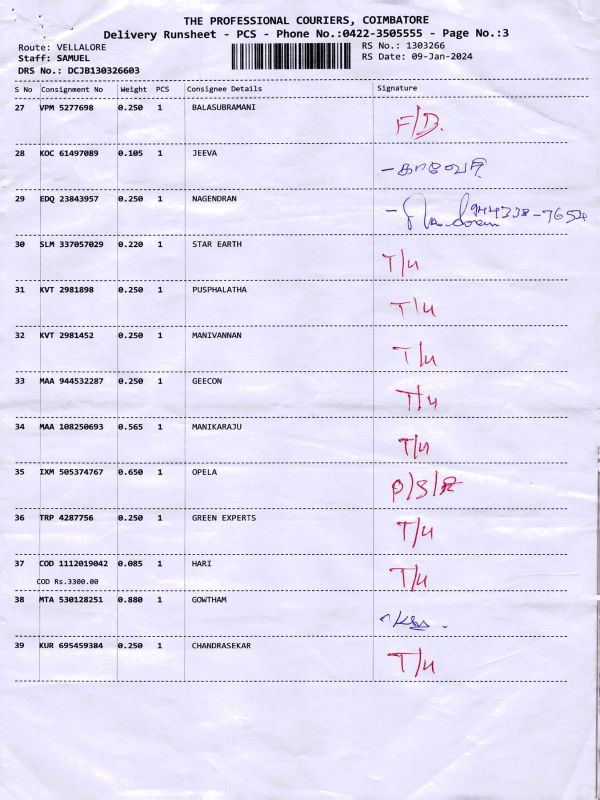 THE PROFESSIONAL COURIERS, COIMBATORE
Delivery Runsheet - PCS - Phone No.:0422-3505555 - Page No.:3
Route: VELLALORE RS No.: 1303266
Staff: SAMUEL RS Date: 09-Jan-2024
DRS No.: DCJB130326603
S No Consignment No Weight PCS Consignee Details Signature
27 VPM 5277698 0.250 1 BALASUBRAMANI F/D.
28 KOC 61497089 0.105 1 JEEVA
29 EDQ 23843957 0.250 1 NAGENDRAN 944338-7654
30 SLM 337057029 0.220 1 STAR EARTH T/u
31 KVT 2981898 0.250 1 PUSPHALATHA T/u
32 KVT 2981452 0.250 1 MANIVANNAN T/u
33 MAA 944532287 0.250 1 GEECON T/u
34 MAA 108250693 0.565 1 MANIKARAJU T/u
35 IXM 505374767 0.650 1 OPELA
36 TRP 4287756 0.250 1 GREEN EXPERTS T/u
37 COD 1112019042 0.085 1 HARI T/u
COD Rs.3300.00
38 MTA 530128251 0.880 1 GOWTHAM
39 KUR 695459384 0.250 1 CHANDRASEKAR T/u